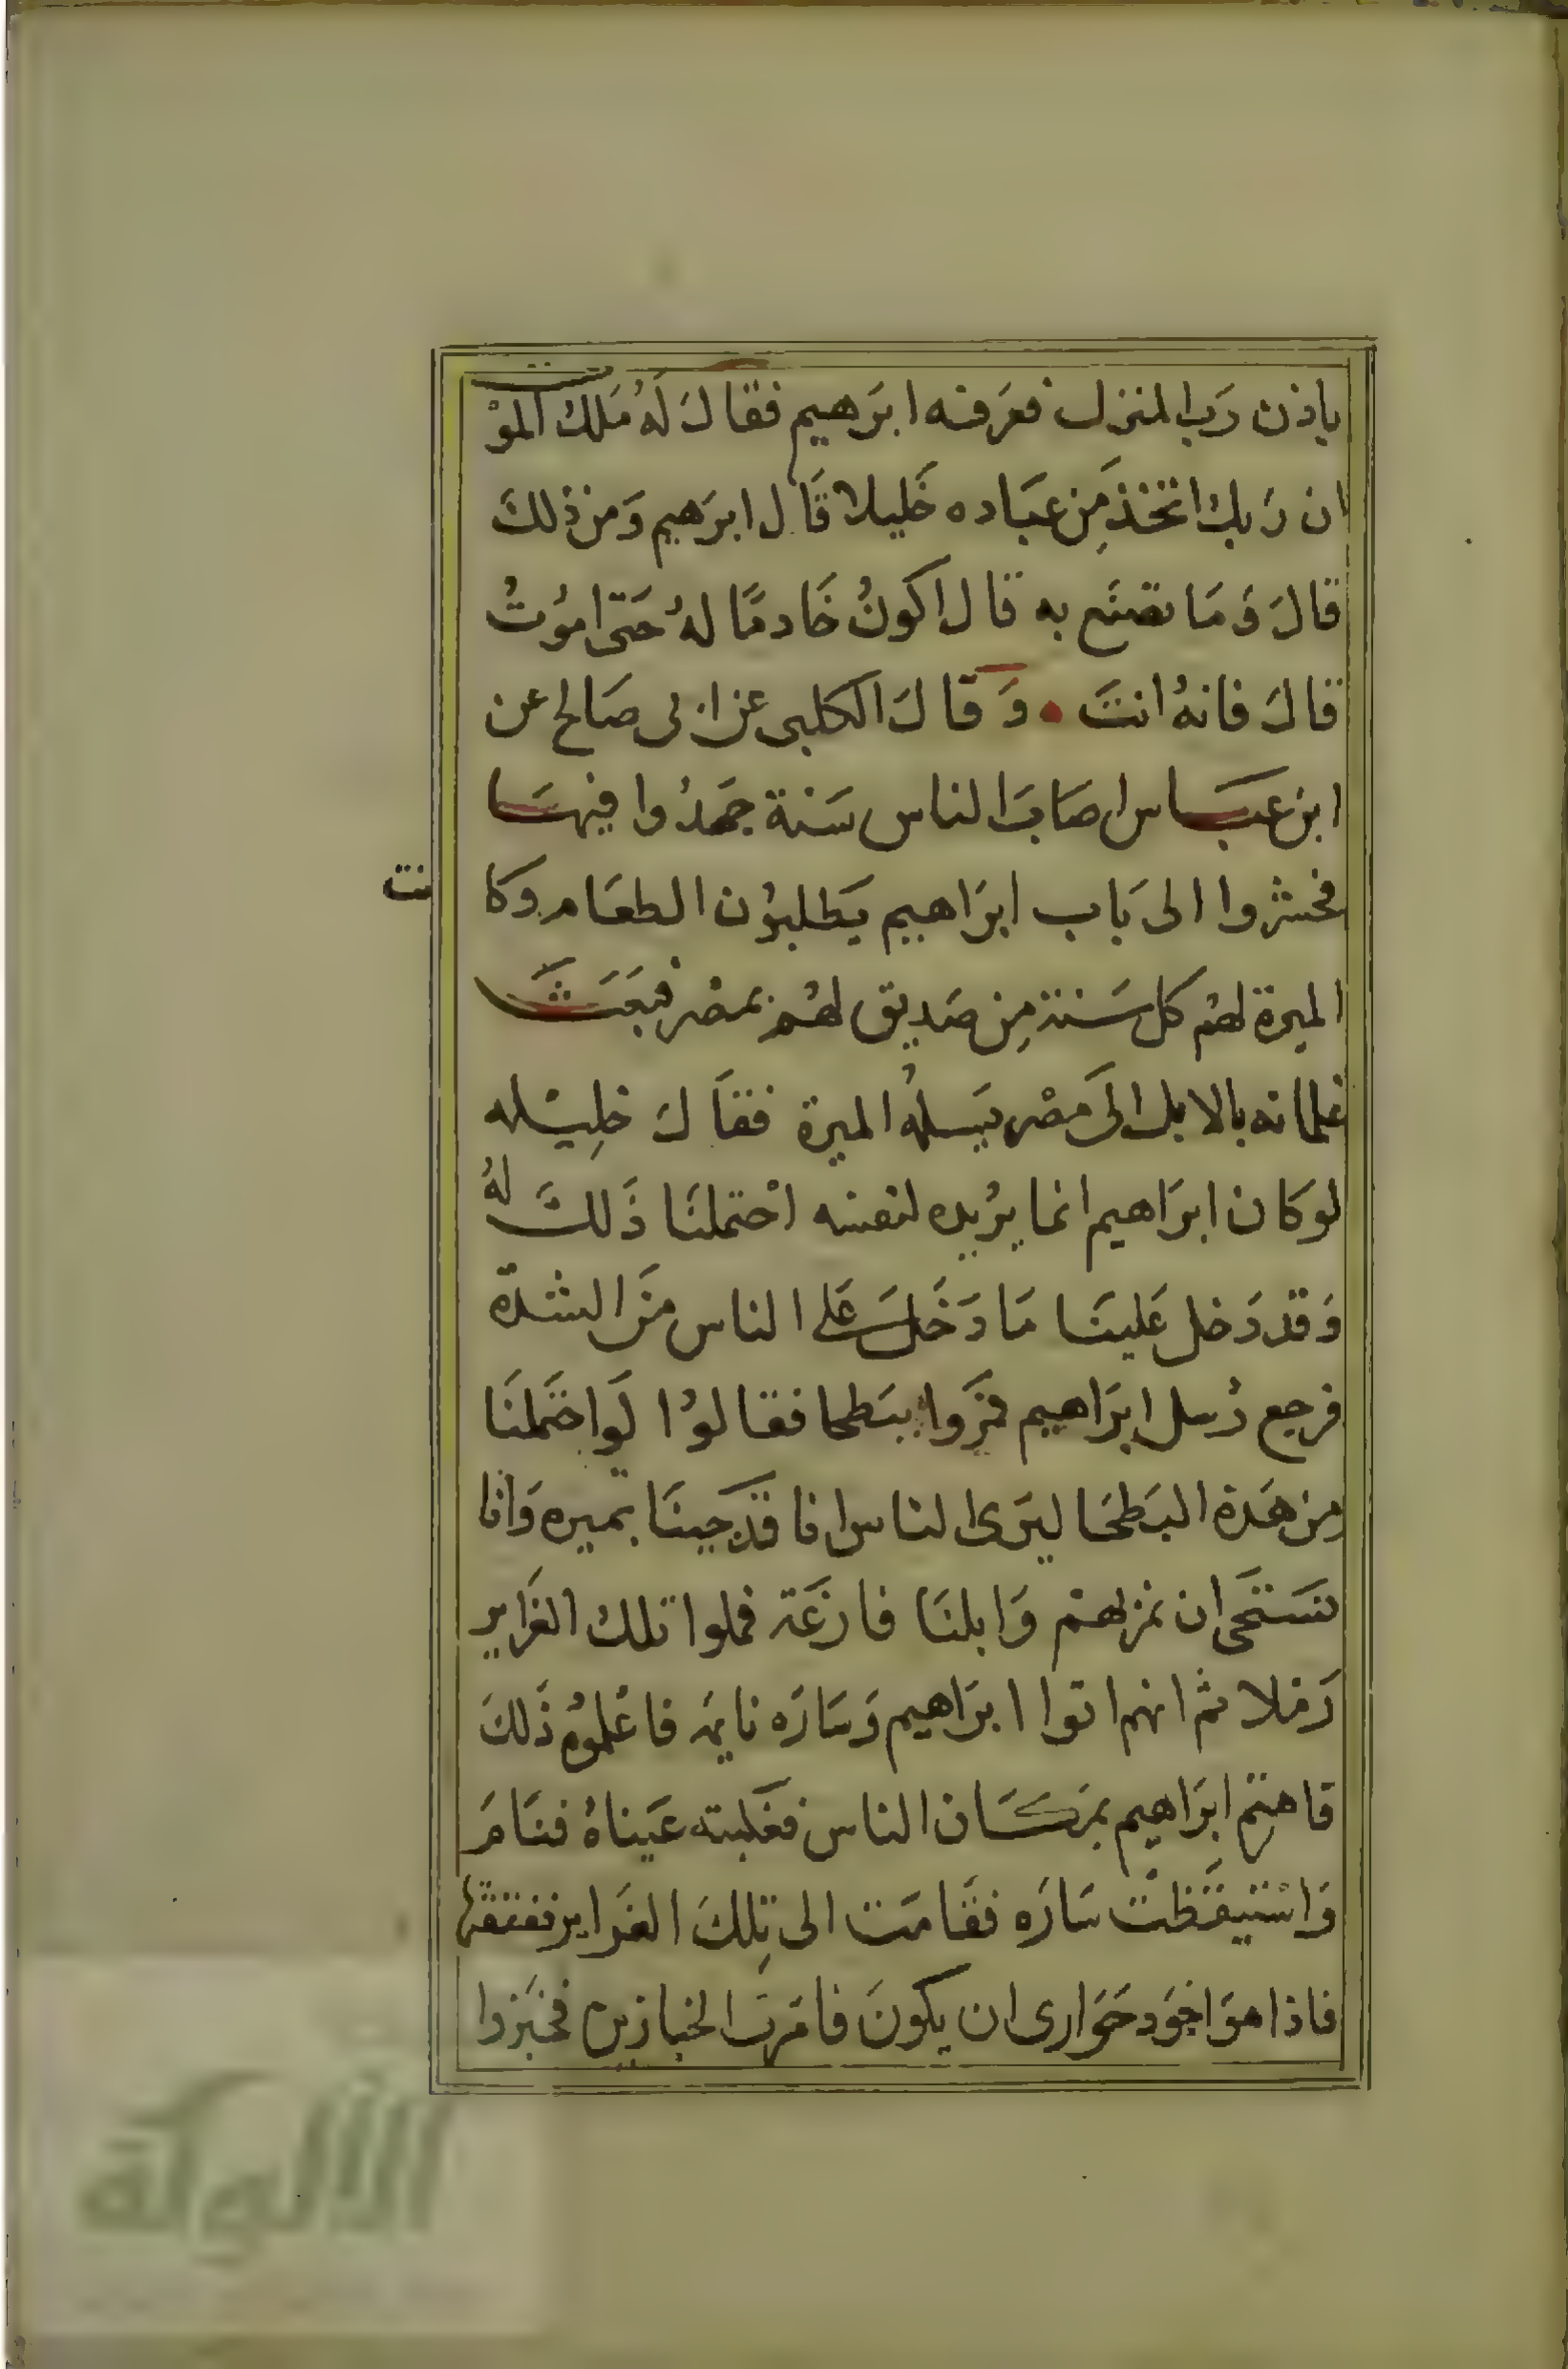 باذن رَب المنزل فعَرفه ابرَهيم فقالَ لهُ مَلكُ المَوْت
ان رَبك اتخذ مِن عبَاده خَليلا قَال ابرَهيم وَمن ذلكَ
قالَ وَمَا تصنَع به قال اكونُ خَادمًا لهُ حَتى امُوتُ
قالَ فانهُ انتَ • وَقالَ الكلبى عن ابى صَالح عن
ابن عبَاس اصَابَ الناس سَنة جهدُوا فيهَا
فحشروا الى بَاب ابرَاهيم يَطلبوُن الطعَام وكانت
الميرة لهُم كل سَنة مِن صَديق لهُم بمصْر فبعَثَ
غلمانه بالابل الىَ مصْر يَسلهُ الميرة فقاَلَ خلِيله
لو كان ابرَاهيم انما يرُيده لنفسه احْتملنَا ذَلكَ لهُ
وَقد دَخل عَلينَا مَا دَخَلَ عَلى الناس منَ الشدة
فرجع رُسل ابرَاهيم فمرَوا ببَطحا فقالوُا لَو احتَملنَا
من هَذة البَطحَا ليرَى الناس انا قدَ جينَا بميره وَانا
نسَتحَى ان نمر بهمْ وَابلنَا فارغَة فملوا تلكُ الغرَاير
رَملا ثم انهم اتوا ابرَاهيم وَسَارَه نايمَه فاعْلموُه ذَلكَ
فاهتم ابرَاهيم بمَكَان الناس فغَلبته عَيناهُ فنَامَ
وَاسْتيقَظتْ سَارَه فقَامَت الى تِلكَ الغَراير ففتقتها
فاذا هوَ اجوَد حَوارى ان يكونَ فامَرتَ الخبازين فخبَزوا
الألوكة